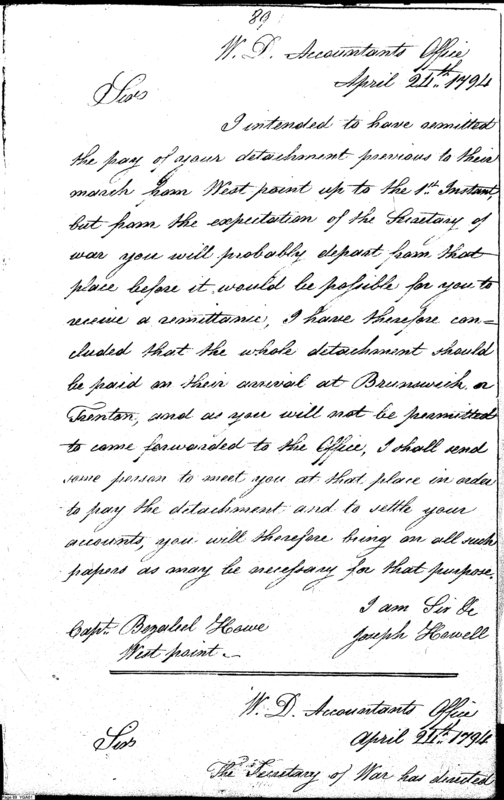 89
W. D. Accountants Office
April 24th. 1794
Sir
I intended to have remitted
the pay of your detachment previous to their
march from West point up to the 1st. Instant,
but from the expectation of the Secretary of
war you will probably depart from that
place before it would be possible for you to
receive a remittance, I have therefore con=
cluded that the whole detachment should
be paid on their arrival at Brunswick or
Trenton, and as you will not be permitted
to come forwarded to the Office, I shall send
some person to meet you at that place in order
to pay the detachment and to settle your
accounts, you will therefore bring on all such
papers as may be necessary for that purpose.
I am Sir &c
Capt. Bezaleel Howe
Joseph Howell
West point
W. D. Accountants Office
April 24th. 1794
Sir
The Secretary of War has directed